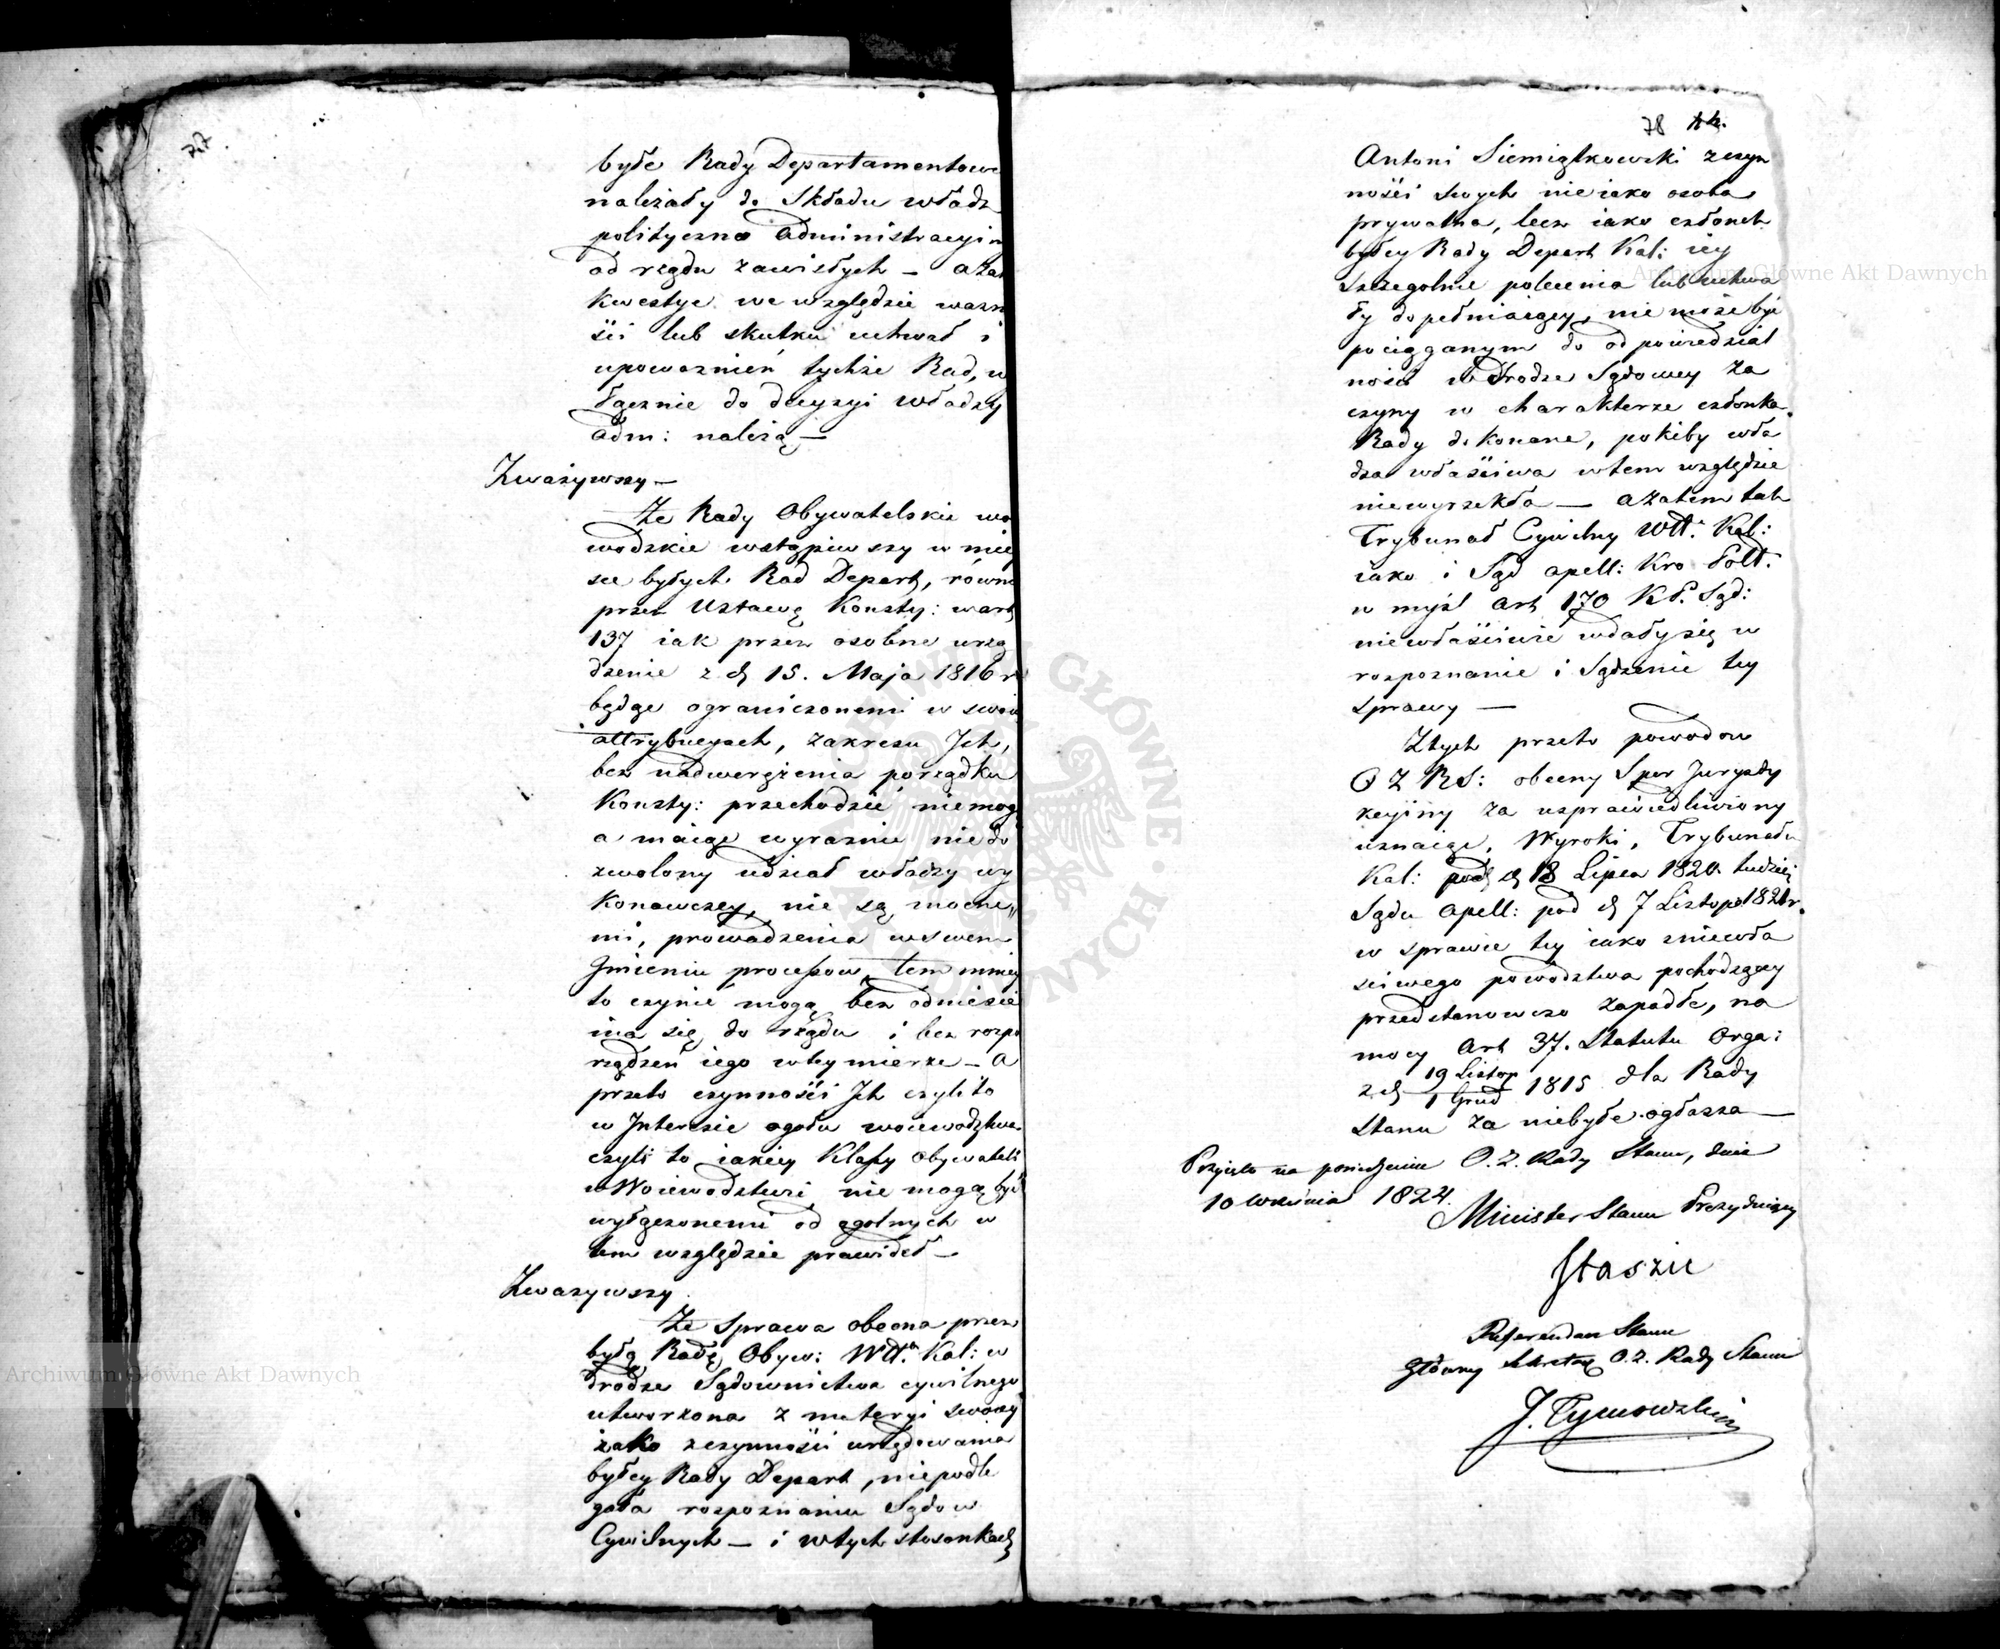 77.
byłe Rady Departamentowe
należały do Składu władz
polityczno Administracyin
od rządu zawisłych – a zat
Kwestye we względzie ważn
ści lub skutku uchwał i
upoważnień tychże Rad, w
łącznie do decyzyi władzy
Adm: należą –
Zważywszy –
Że Rady Obywatelskie wo
wodzkie wstąpiwszy w miey
sce byłych Rad Depart, równ
przez Ustawę Konsty: w art
137 iak przez osobne urzą
dzenie z d. 15. Maja 1816 r
będąc ograniczonemi w swoi
attrybucyach, zakresu Jch,
bez nadwerężenia porządku
Konsty: przechodzić niemog
a maiąc wyraznie niedo
zwolony udział władzy wy
Konawczey, nie są mocne„
mi, prowadzenia w swem
Jmieniu processow, tem mniey
to czynić mogą bez odniesie
nia się do rządu i bez rozpo
rządzeń iego w tey mierze – a
przeto czynności Jch czyli to
w Jnteresie ogołu woiewodztwa
czyli to iakiey Klassy Obywateli
w Woiewodztwie nie mogą być
wyłączonemi od ogolnych w
tem względzie prawideł –
Zważywszy
Że Sprawa obecna przez
byłą Radę Obyw: Wdt. Kal: w
drodze Sądownictwa cywilnego
utworzona z materyi swoiey
iako z czynności urzędowania
byłey Rady Depart, niepodle
gała rozpoznaniu Sądow
Cywilnych – i w tych stosunkach
78
Antoni Siemiątkowski z czyn
ności swych nie iako osoba
prywatna, lecz iako członek
byłey Rady Depart Kal: iey
szczegolne polecenia lub uchwa
ły dopełniaiący, nie może być
pociąganym do odpowiedzial
ności w drodze Sądowey za
czyny w charakterze członka
Rady dokonane, pokiby wła
dza właściwa w tem względzie
niewyrzekła – a zatem tak
Trybunał Cywilny Wdt. Kal:
iako i Sąd apell: Kro Pols.
w myśl art 170 K.P. Sąd:
niewłaściwie wdały się w
rozpoznanie i Sądzenie tey
sprawy –
Z tych przeto powodow
O Z R S: obecny Spor Juryzdy
kcyiny za usprawiedliwiony
uznaiąc, Wyroki, Trybunału
Kal: pod d 18 Lipca 1820. tudzież
Sądu Apell: pod d 7 Listop 1821 r.
w sprawie tey iako z niewła
sciwego powodztwa pochodzącey
przedstanowczo zapadłe, na
mocy Art 37. Statutu Orga:
z d 19 Listop 1815 dla Rady
1 Grud
Stanu za niebyłe ogłasza –
Przyięto na posiedzeniu O. Z. Rady Stanu, dnia
10 Września 1824.
Minister Stanu Prezyduiący
Staszic
Referendarz Stanu
Główny Sekretarz O. Z. Rady Stanu
J. Tymowski
Archiwum Główne Akt Dawnych
Archiwum Główne Akt Dawnych